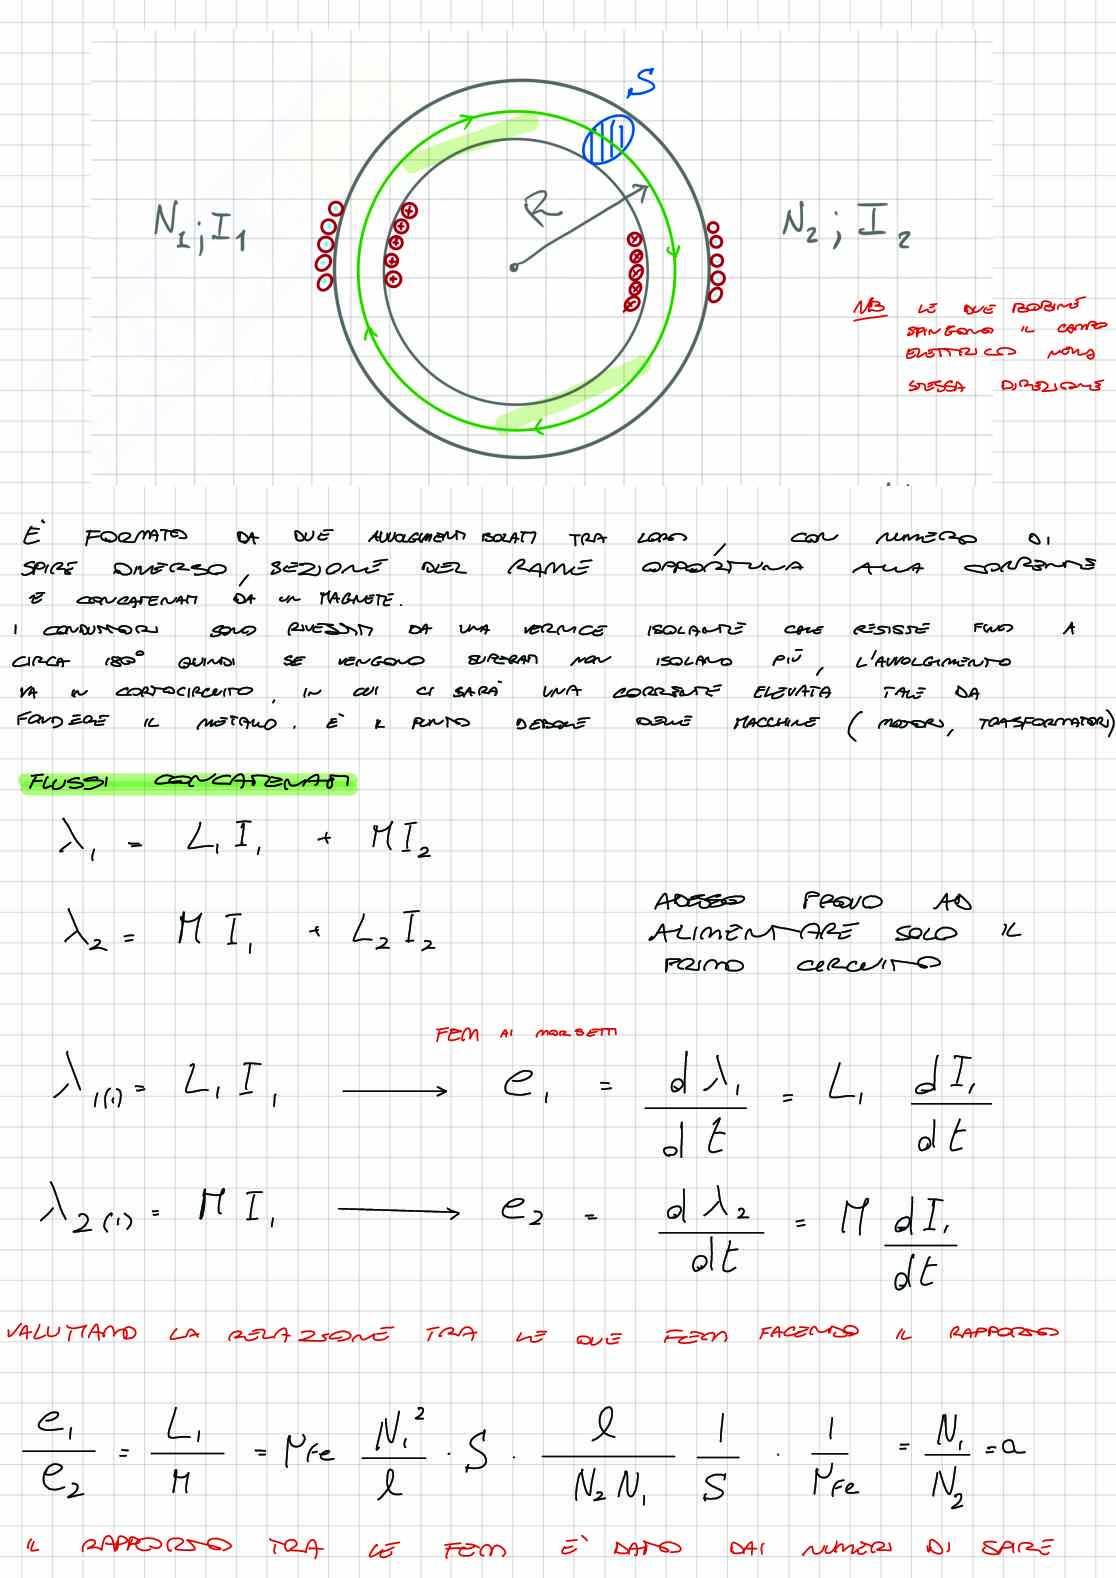 S
R
N₁; I₁
N₂; I₂
NB LE DUE BOBINE
SPINGONO IL CAMPO
ELETTRICO NELLA
STESSA DIREZIONE
È FORMATO DA DUE AVVOLGIMENTI ISOLATI TRA LORO, CON NUMERO DI
SPIRE DIVERSO, SEZIONE DEL RAME OPPORTUNA ALLA CORRENTE
E CONCATENATI DA UN MAGNETE.
I CONDUTTORI SONO RIVESTITI DA UNA VERNICE ISOLANTE CHE RESISTE FINO A
CIRCA 180° QUINDI SE VENGONO SUPERATI NON ISOLANO PIÙ, L'AVVOLGIMENTO
VA IN CORTOCIRCUITO, IN CUI CI SARÀ UNA CORRENTE ELEVATA TALE DA
FONDERE IL METALLO. È IL PUNTO DEBOLE DELLE MACCHINE (MOTORI, TRASFORMATORI)
FLUSSI CONCATENATI
λ₁ = L₁ I₁ + M I₂
λ₂ = M I₁ + L₂ I₂
ADESSO PROVO AD
ALIMENTARE SOLO IL
PRIMO CIRCUITO
FEM AI MORSETTI
λ₁₍₁₎ = L₁ I₁ → e₁ = dλ₁/dt = L₁ dI₁/dt
λ₂₍₁₎ = M I₁ → e₂ = dλ₂/dt = M dI₁/dt
VALUTIAMO LA RELAZIONE TRA LE DUE FEM FACENDO IL RAPPORTO
e₁/e₂ = L₁/M = μFe N₁²/l · S · l/N₂N₁ 1/S · 1/μFe = N₁/N₂ = a
IL RAPPORTO TRA LE FEM È DATO DAI NUMERI DI SPIRE